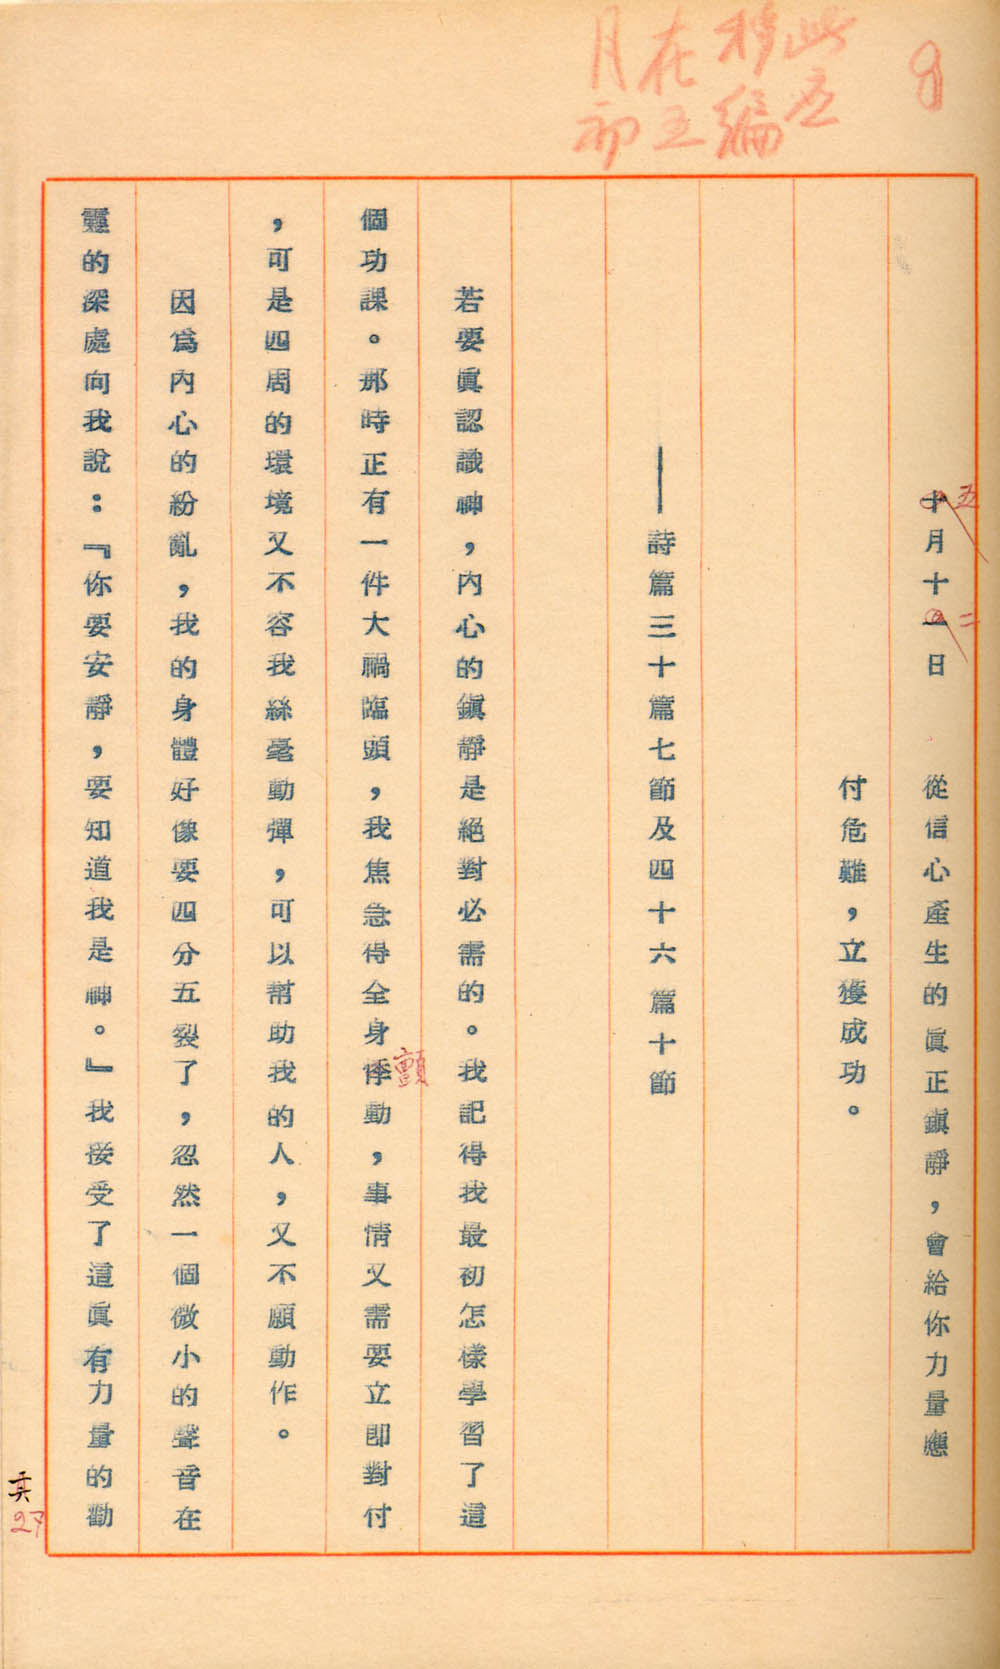 此應
移編
在五
月初
五
十月十一日 從信心產生的眞正鎭靜，會給你力量應
二
付危難，立獲成功。
——詩篇三十篇七節及四十六篇十節
若要眞認識神，內心的鎭靜是絕對必需的。我記得我最初怎樣學習了這
個功課。那時正有一件大禍臨頭，我焦急得全身悸動，事情又需要立即對付
顫
，可是四周的環境又不容我絲毫動彈，可以幫助我的人，又不願動作。
因爲內心的紛亂，我的身體好像要四分五裂了，忽然一個微小的聲音在
靈的深處向我說：『你要安靜，要知道我是神。』我接受了這眞有力量的勸
27